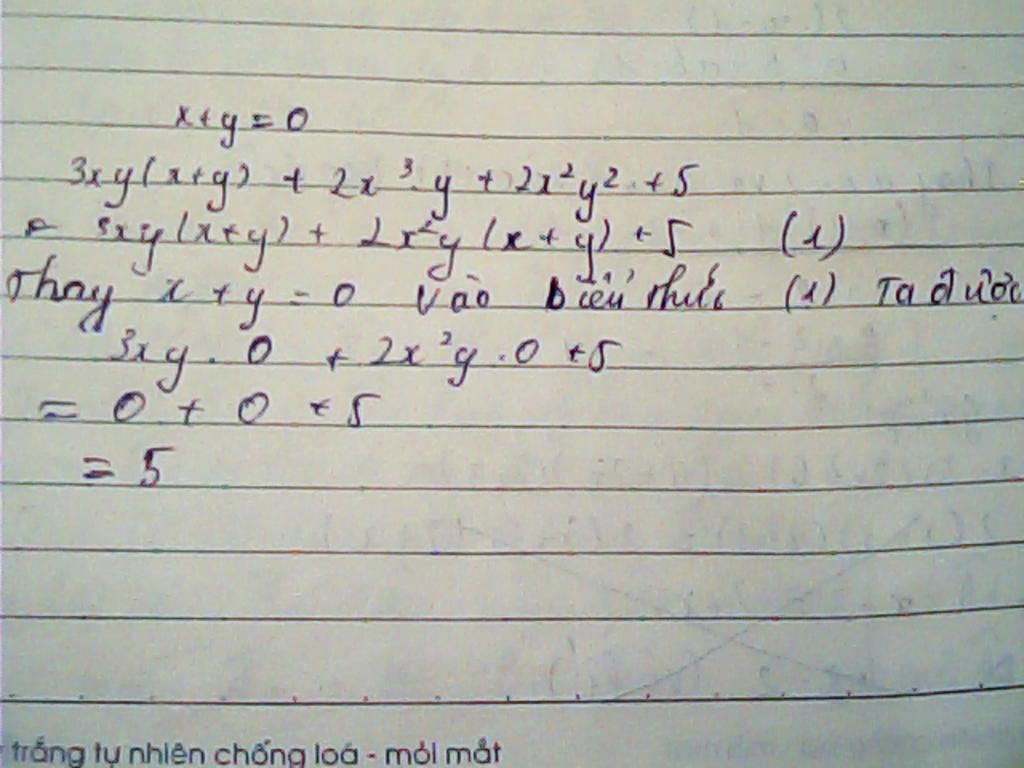 x+y=0
3xy(x+y) + 2x³.y + 2x²y² + 5
= 3xy(x+y) + 2x²y(x+y) + 5 (1)
Thay x+y=0 vào biểu thức (1) Ta được
3xy.0 + 2x²y.0 + 5
= 0 + 0 + 5
= 5
trắng tự nhiên chống loá - mỏi mắt